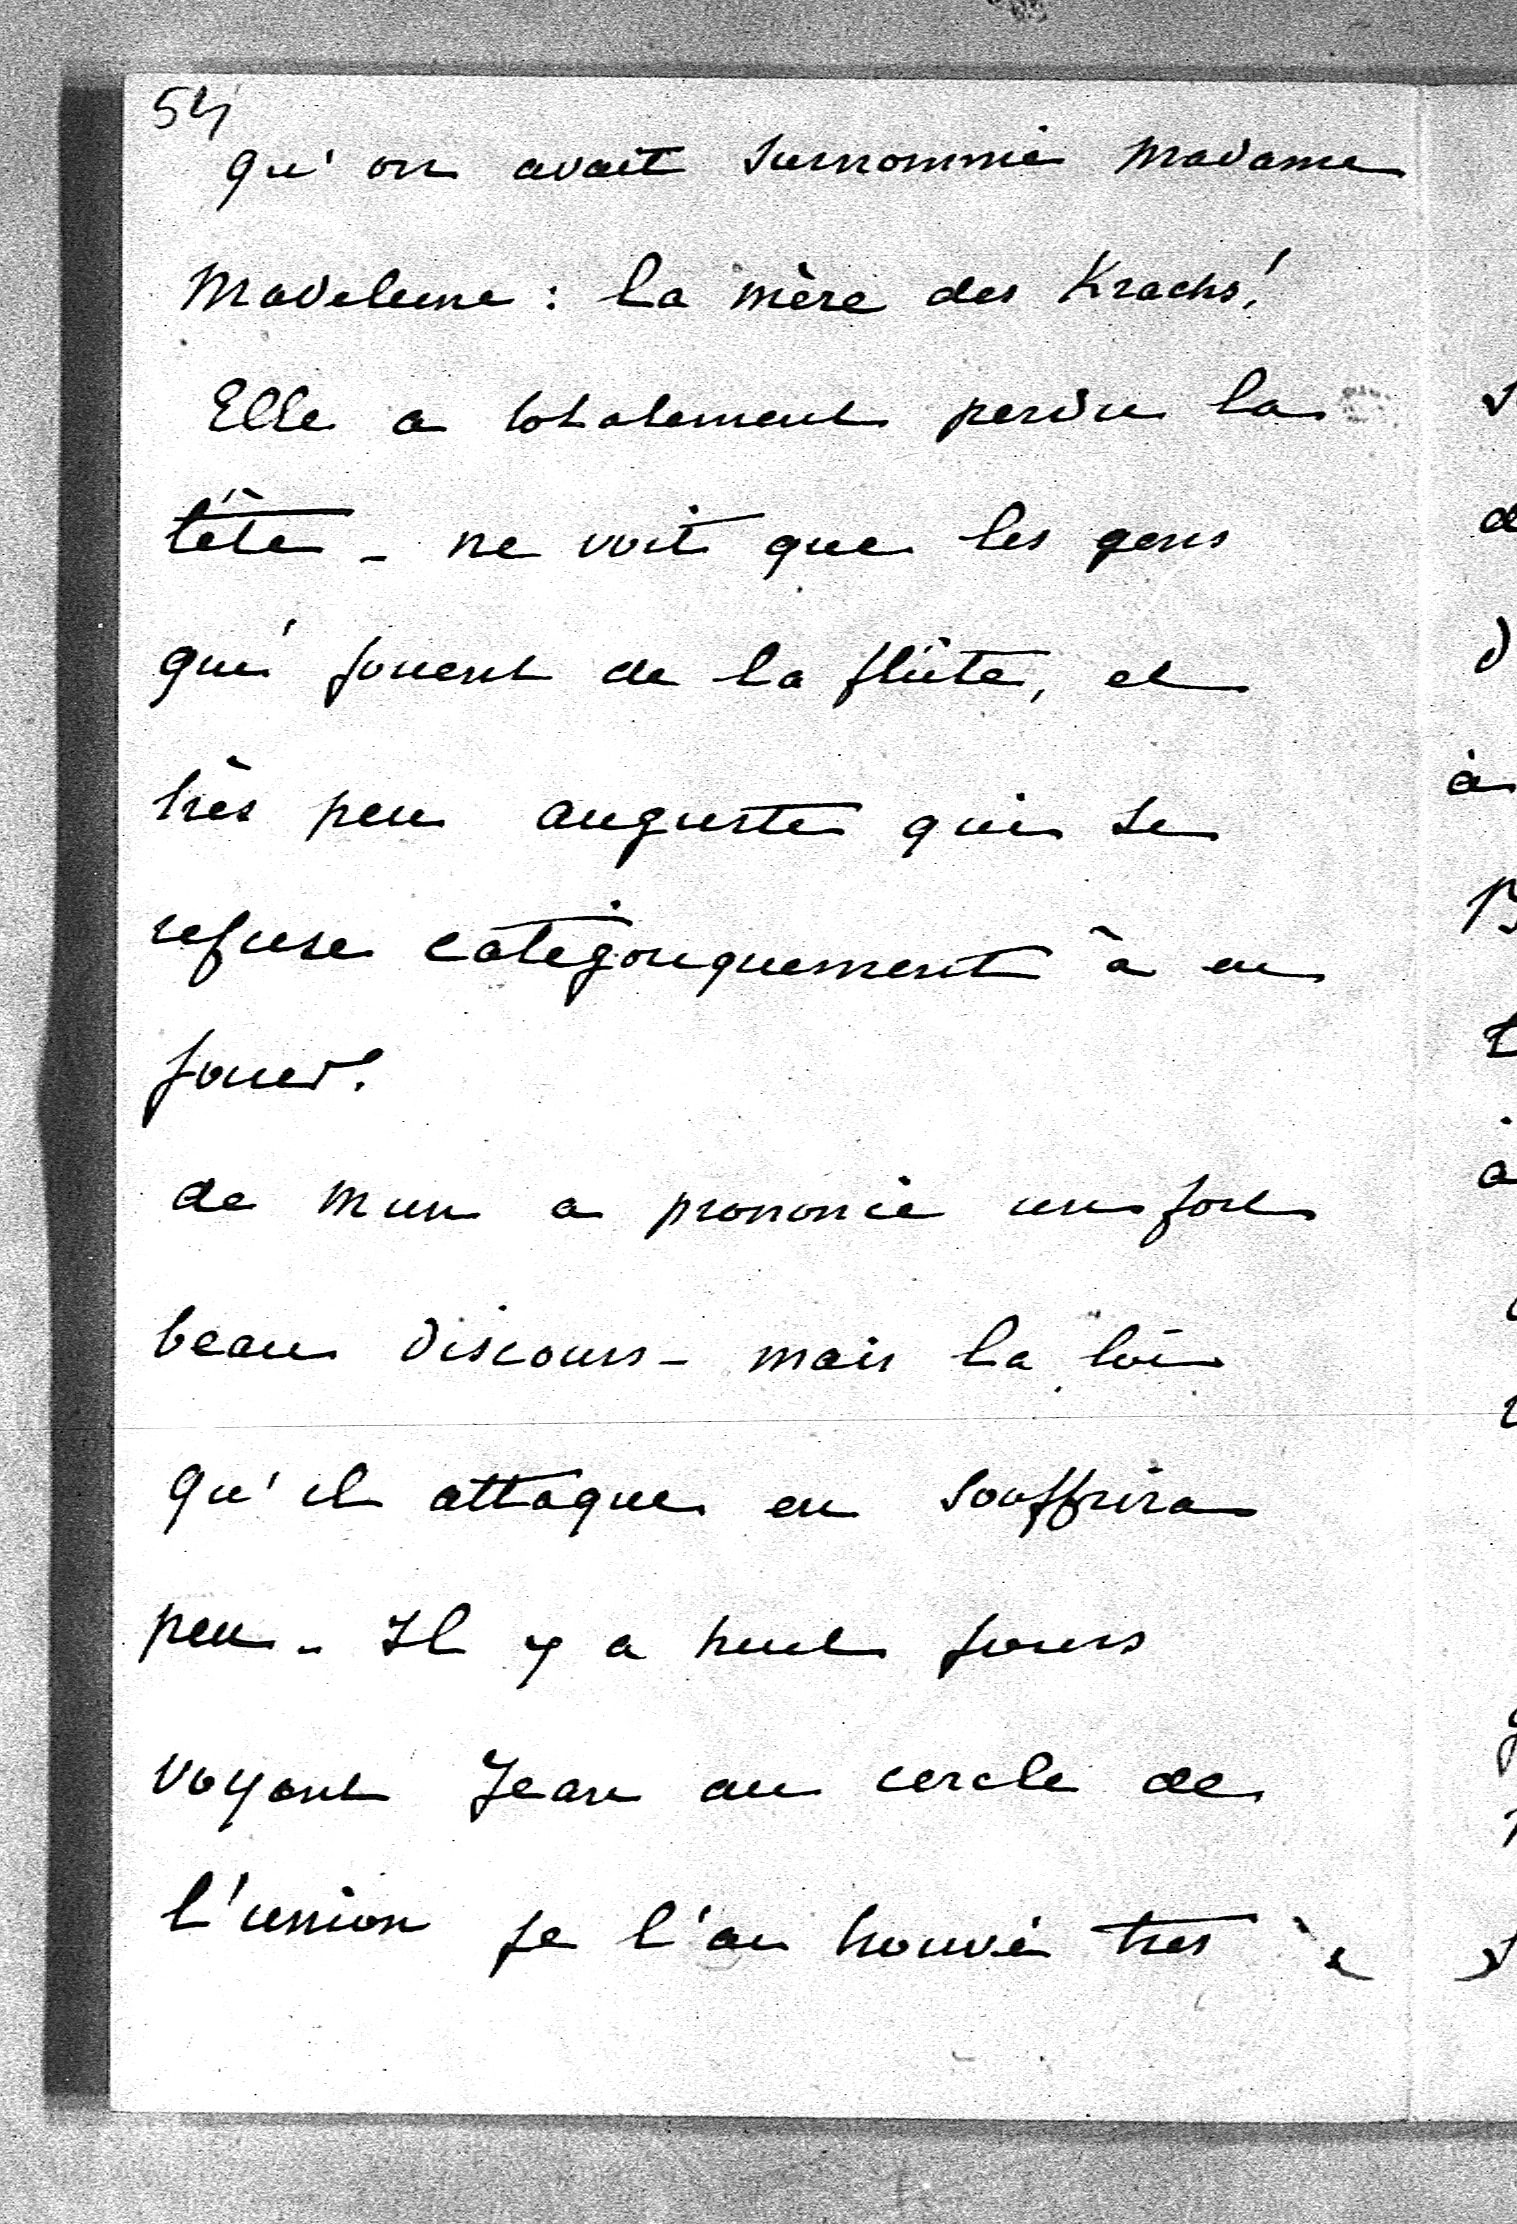 54
qu'on avait surnommé Madame
Madeleine : la mère des Krachs!
Elle a totalement perdu la
tête - ne voit que les gens
qui jouent de la flûte, et
très peu auguste qui se
refuse catégoriquement à en
jouer.
de Mun a prononcé un fort
beau discours - mais la loi
qu'il attaque en souffrira
peu - Il y a huit jours
voyant Jean au cercle de
l'union je l'ai trouvé très